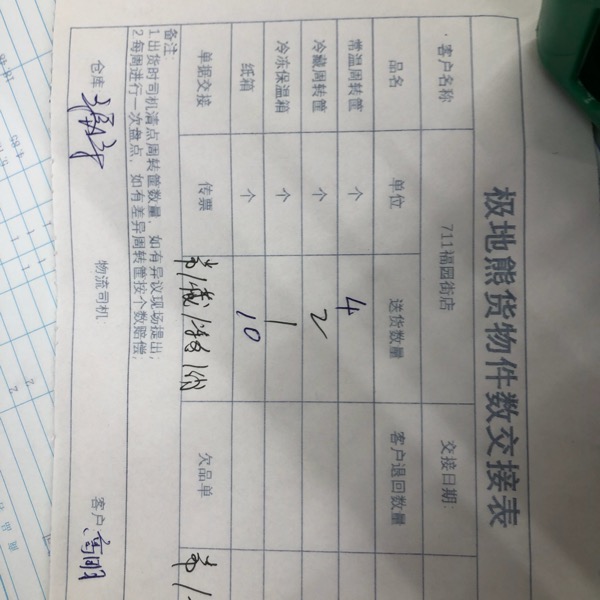 极地熊货物件数交接表
客户名称 711福园街店 交接日期:
品名 单位 送货数量 客户退回数量
常温周转筐 个 4
冷藏周转筐 个 2
冷冻保温箱 个 1
纸箱 个 10
单据交接 传票 欠品单
备注:
1出货时司机清点周转筐数量,如有异议现场提出;
2每周进行一次盘点,如有差异周转筐按个数赔偿;
仓库 物流司机 客户